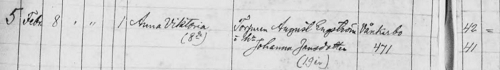 5 Febr 8 " " 1 Anna Viktoria Torparen August Engström Vänkerbo 42 =
(8de) o. h. Johanna Jansdotter 471 41
(19en)